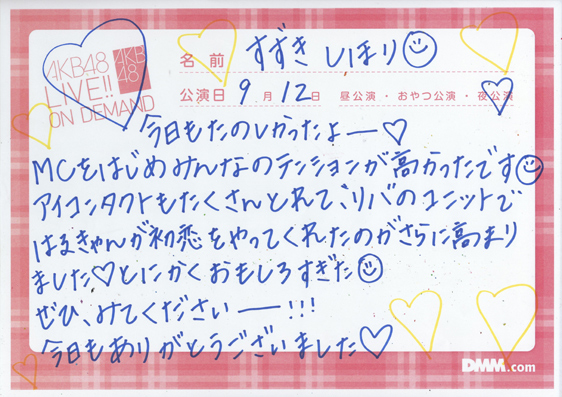 AKB48
LIVE!!
ON DEMAND
AKB
48
名前 すずき しほり
公演日 9月12日 昼公演・おやつ公演・夜公演
今日もたのしかったよー♡
MCをはじめみんなのテンションが高かったです
アイコンタクトもたくさんとれて、リバのユニットで
はるきゃんが初恋をやってくれたのがさらに高まり
ました♡とにかくおもしろすぎた
ぜひ、みてくださいー!!!
今日もありがとうございました♡
DMM.com